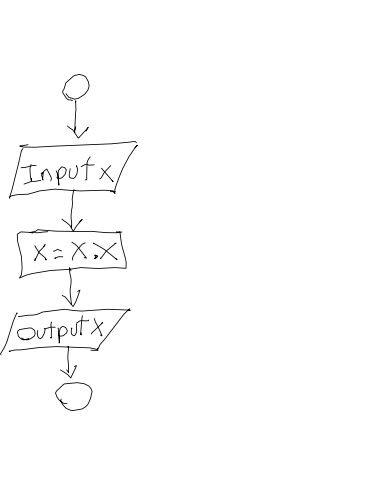 Input x
x = x.x
output x